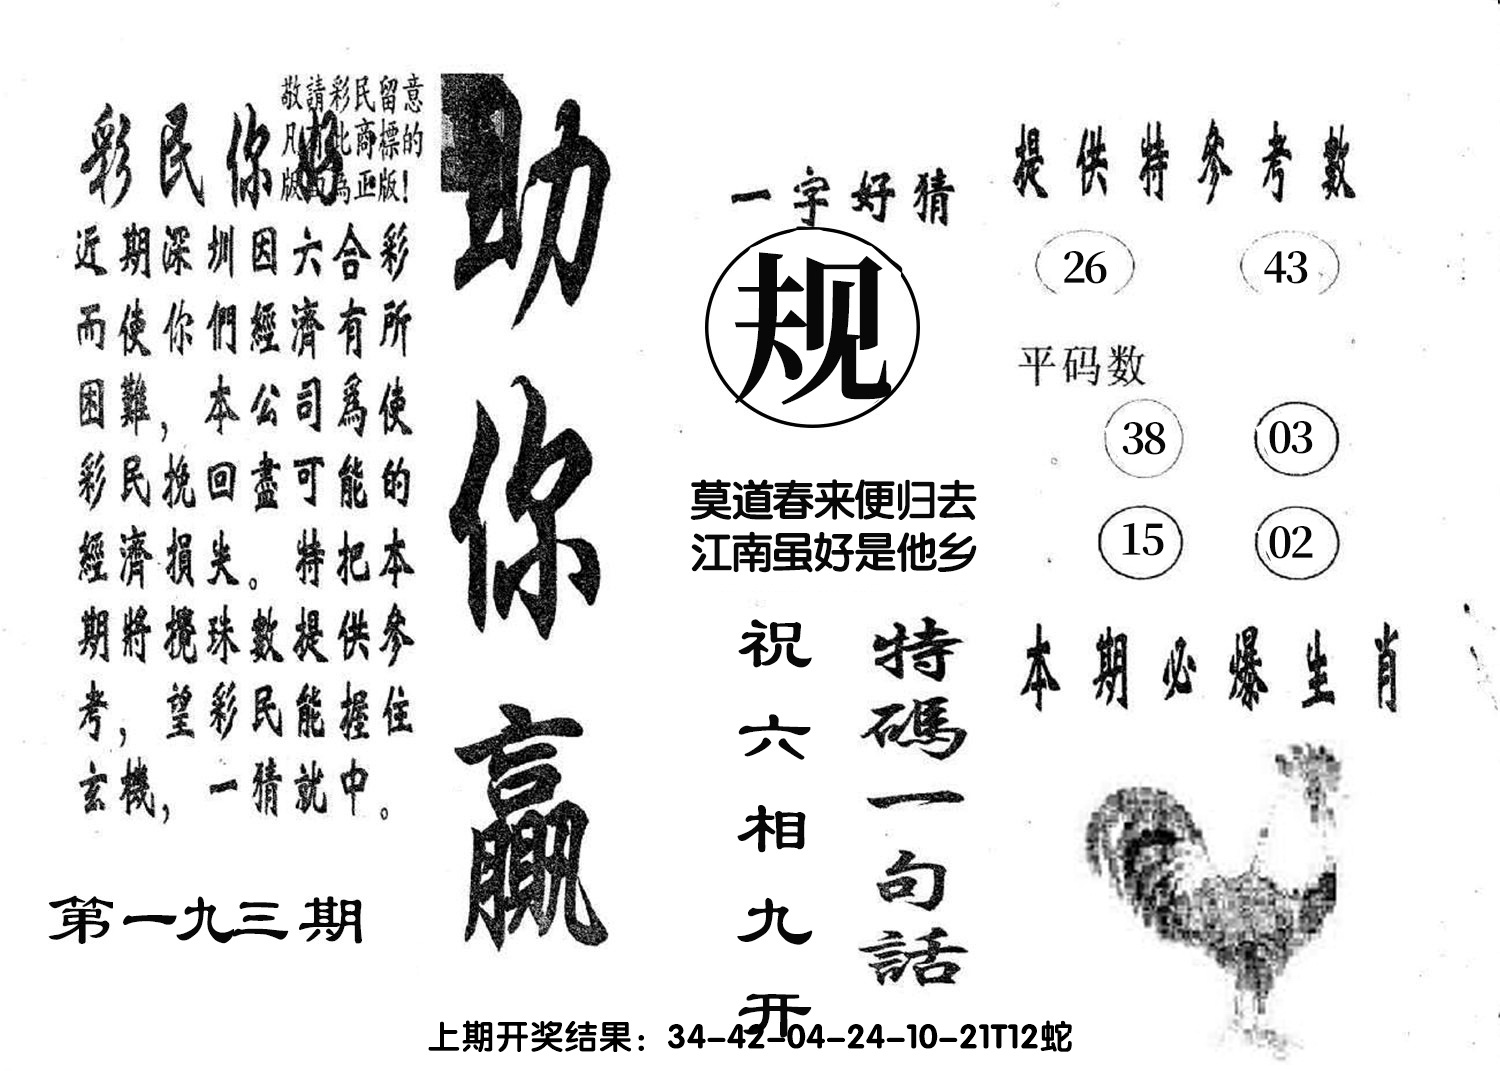 敬請彩民留意
凡有此商標的
版面為正版！
彩民你好
近期深圳因六合彩
而使你們經濟有所
困難，本公司爲使
彩民挽回盡可能的
經濟損失。特把本
期將攪珠數提供參
考，望彩民能握住
玄機，一猜就中。
第一九三期
助你贏
一字好猜
规
莫道春来便归去
江南虽好是他乡
特碼一句話
祝六相九开
提供特參考數
26 43
平码数
38 03
15 02
本期必爆生肖
上期开奖结果：34-42-04-24-10-21T12蛇